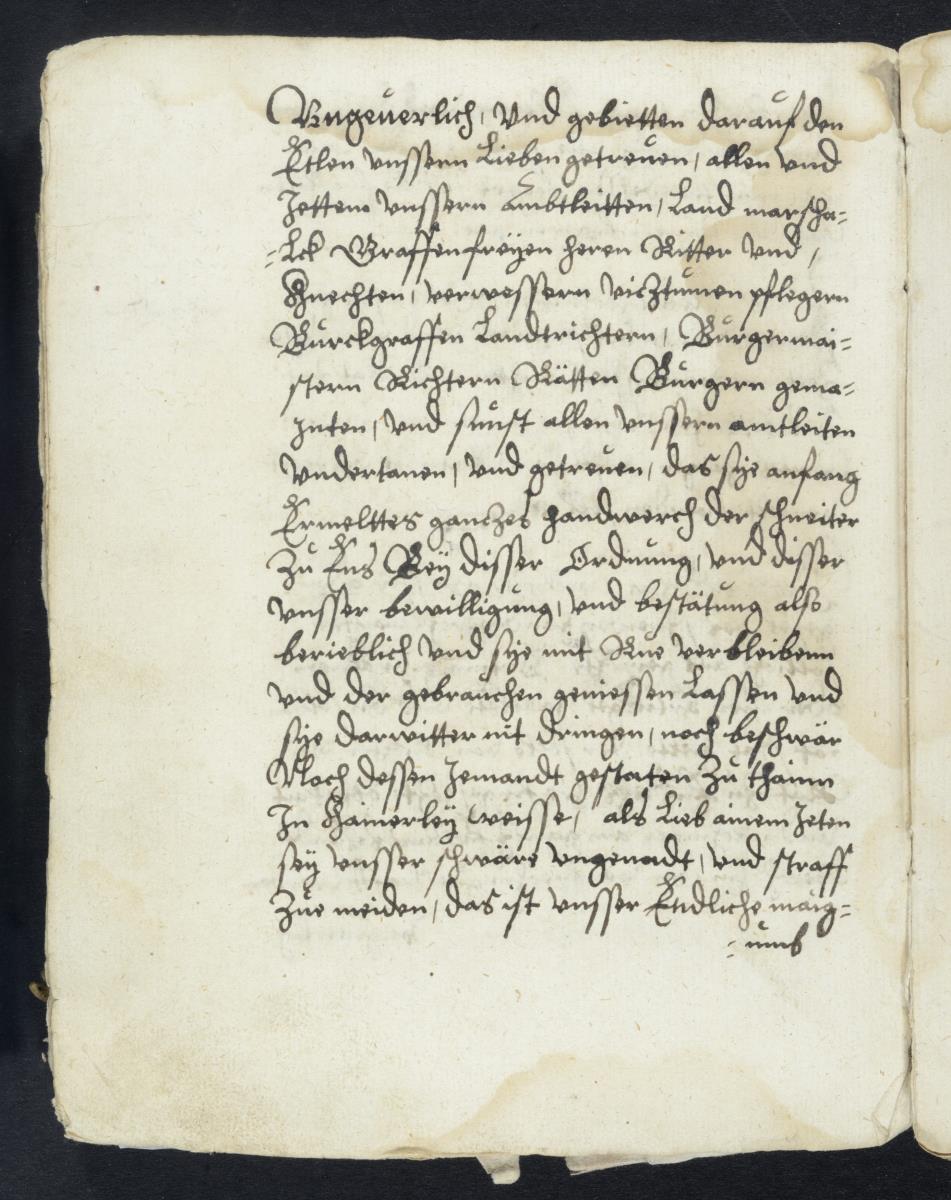 Vngeuerlich, Vnd gebietten darauf den
Etlen vnssern Lieben getreuen, allen vnd
Jettem vnssern Ambtleitten, Land marscha=
=lck Graffen freÿen heren Ritter vnd,
Knechten, verwessern viczthumen pflegern
Burckgraffen Landtrichtern, Burgermai=
stern Richtern Rätten Burgern gema=
inten, vnd sunst allen vnssern amtleiten
Vndertanen, vnd getreuen, das sÿe anfang
Ermelttes ganczes handwerch der schneiter
Zu Ens Beÿ disser Ordnung, vnd disser
vnsser bewilligung, vnd bestätung also
berieblich vnd sÿe mit Rue verbleibenn
vnd der gebrauchen geniessen Lassen vnd
sÿe darwitter nit dringen, noch beschwär
Noch dessen Jemandt gestaten Zu thainn
In Kainerleÿ weisse, als Lieb ainem Jeten
seÿ vnsser schwäre vngenadt, vnd straff
Zue meiden, das ist vnsser Endliche maig=
=numb